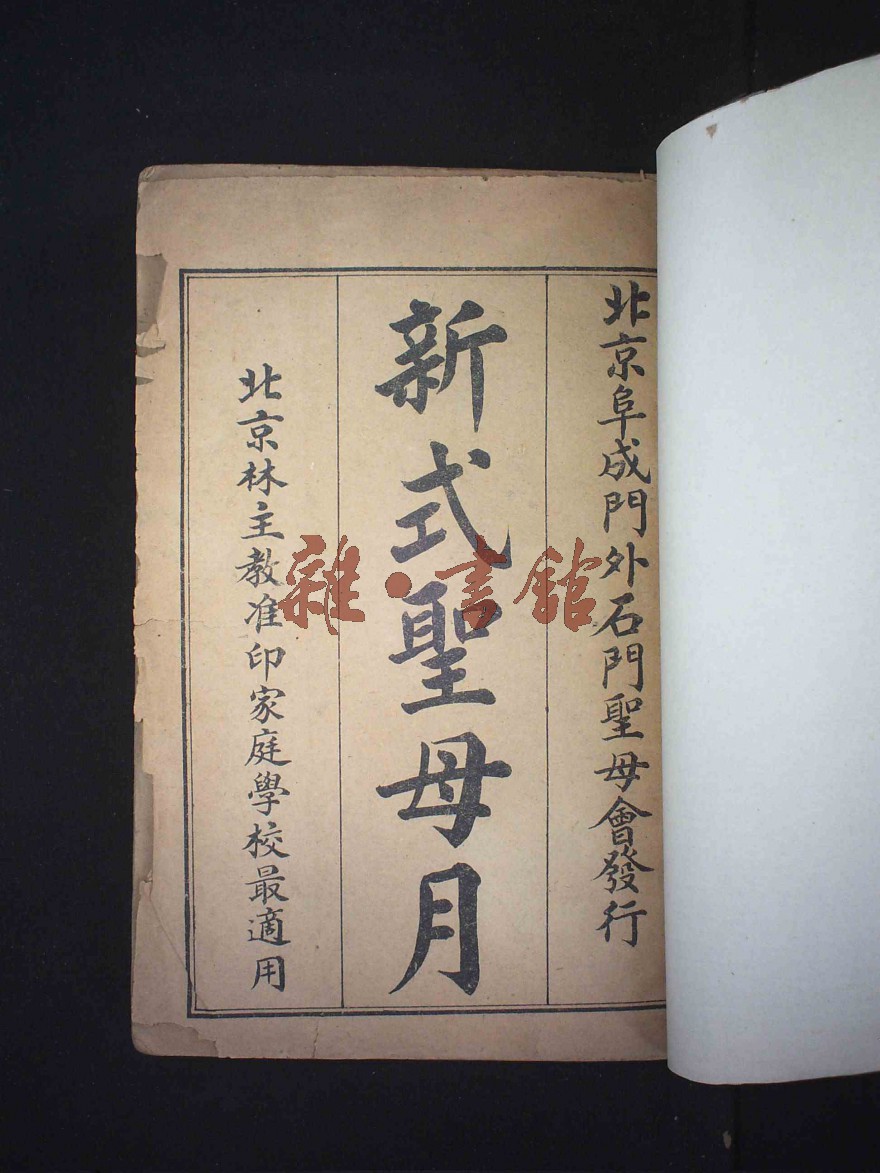 北京阜成門外石門聖母會發行
新式聖母月
北京林主教准印家庭學校最適用
雜·書館